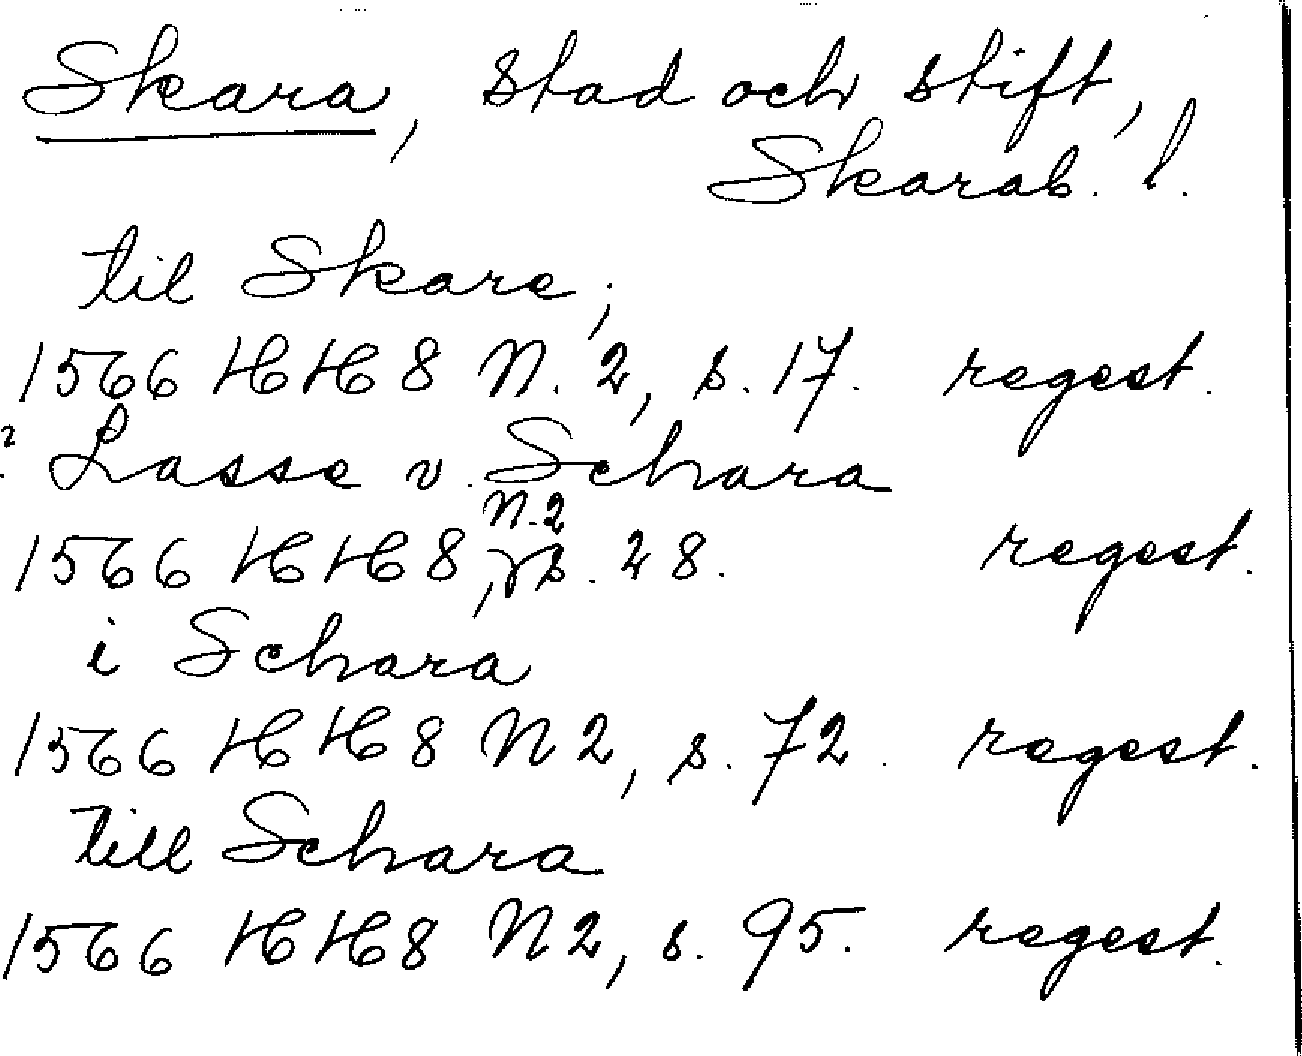 Skara, stad och stift,
Skarab. l.
til Skare;
1566 HH8 N. 2, s. 17. regest.
? Lasse v. Schara
N. 2
1566 HH8, s. 28. regest.
i Schara
1566 HH8 N2, s. 72. regest.
till Schara
1566 HH8 N2, s. 95. regest.